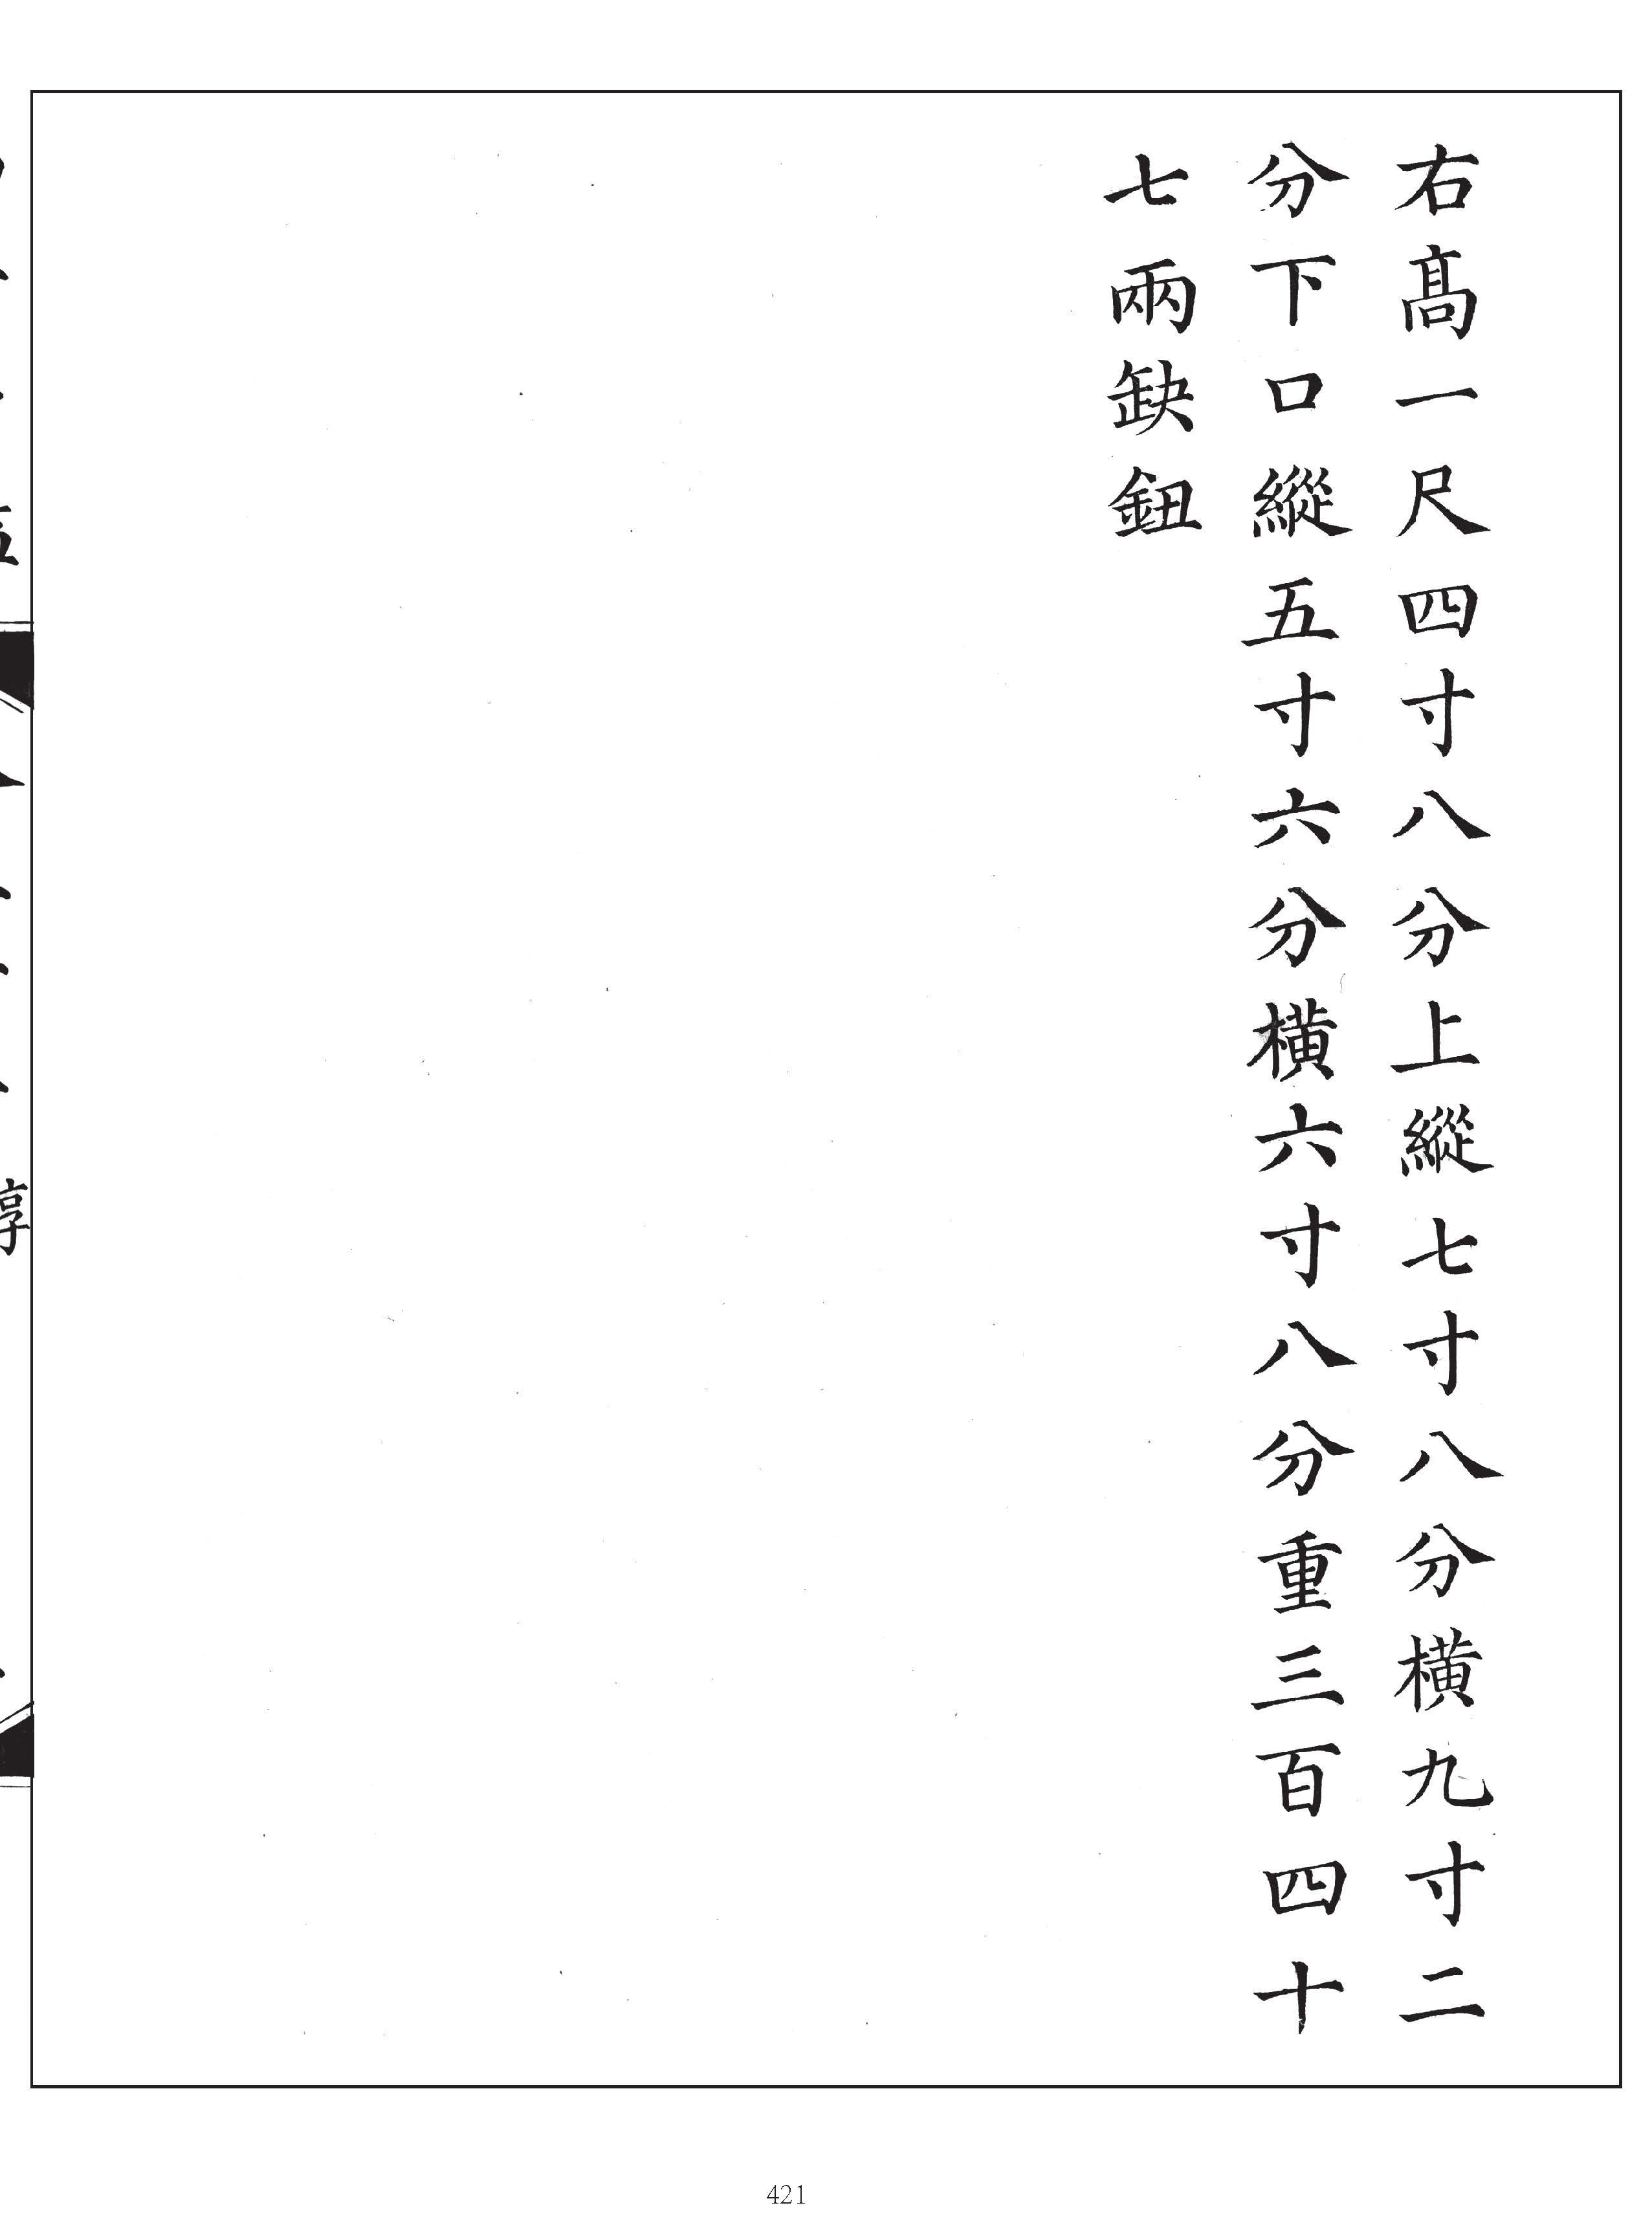 右髙一尺四寸八分上縱七寸八分橫九寸二
分下口縱五寸六分橫六寸八分重三百四十
七兩缺鈕
421